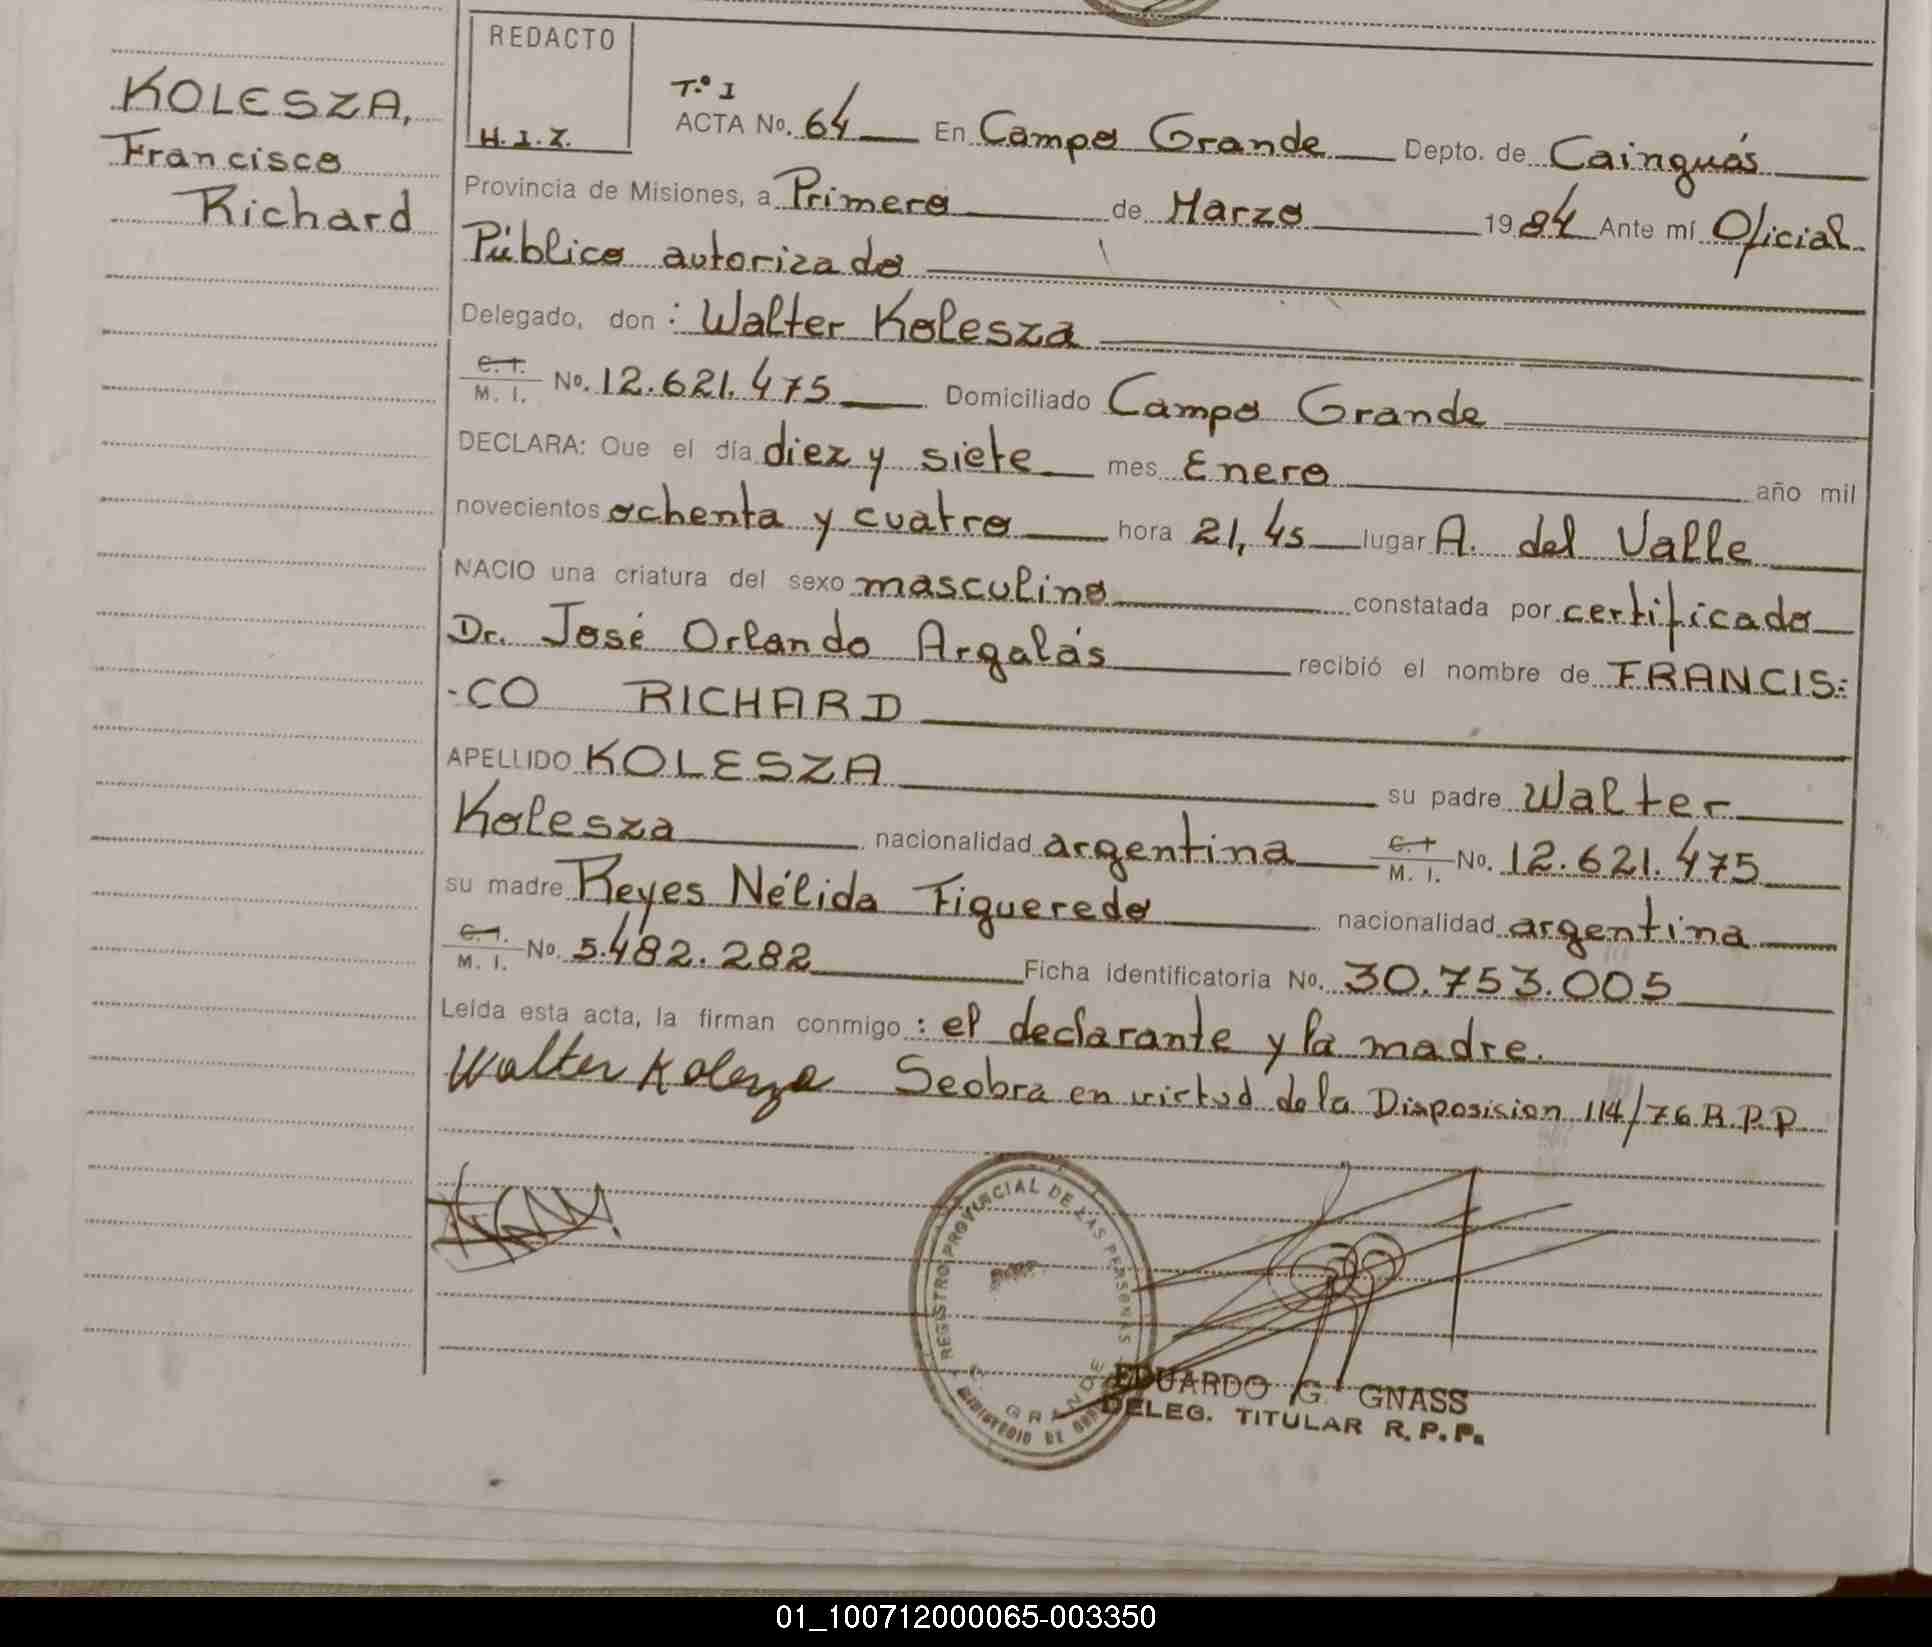 KOLESZA,
Francisco
Richard
REDACTO
H.I.Z.
T.º I
ACTA No. 64 En Campo Grande Depto. de Cainguás
Provincia de Misiones, a Primero de Marzo 1984 Ante mí Oficial
Público autorizado
Delegado, don : Walter Kolesza
C.I. M. I. No. 12.621.475 Domiciliado Campo Grande
DECLARA: Que el día diez y siete mes Enero año mil
novecientos ochenta y cuatro hora 21,45 lugar A. del Valle
NACIO una criatura del sexo masculino constatada por certificado
Dr. José Orlando Argalás recibió el nombre de FRANCIS=
-CO RICHARD
APELLIDO KOLESZA su padre Walter
Kolesza nacionalidad argentina C.I. M. I. No. 12.621.475
su madre Reyes Nélida Figueredo nacionalidad argentina
C.I. M. I. No. 5.482.282 Ficha identificatoria No. 30.753.005
Leída esta acta, la firman conmigo : el declarante y la madre.
Walter Kolesza Seobra en virtud de la Disposision 114/76 R.P.P
REGISTRO PROVINCIAL DE LAS PERSONAS
C. GRANDE
MINISTERIO DE
EDUARDO G. GNASS
DELEG. TITULAR R.P.P.
01_100712000065-003350